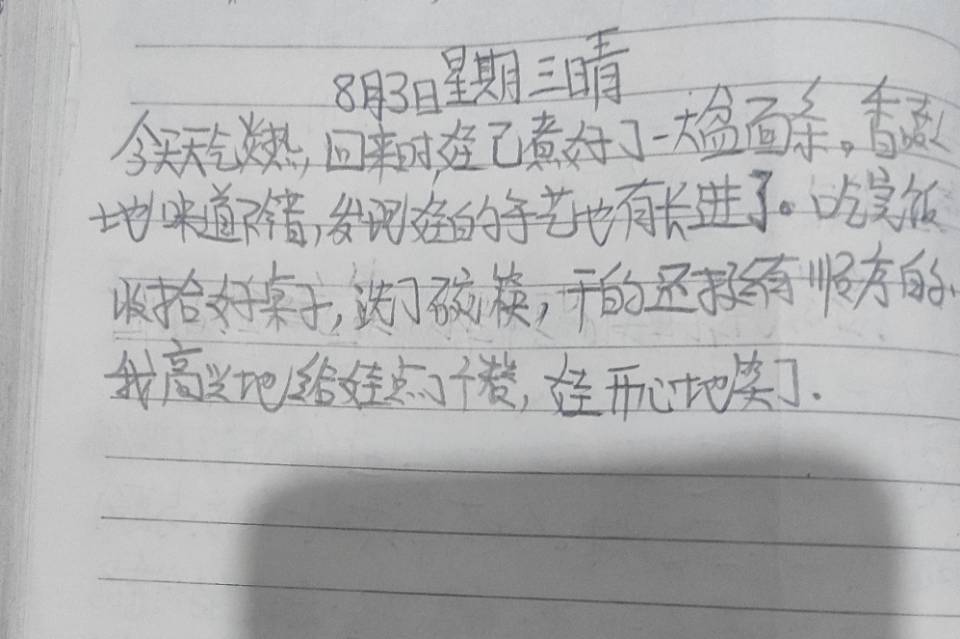 8月3日星期三晴
今天天气炎热,回来时,娃已煮好了一大盆面条。香喷
地味道不错,发现娃的手艺也有长进了。吃完饭
收拾好桌子,洗了碗筷,干的还挺有顺序的、
我高兴地给娃点了个赞,娃开心地笑了.